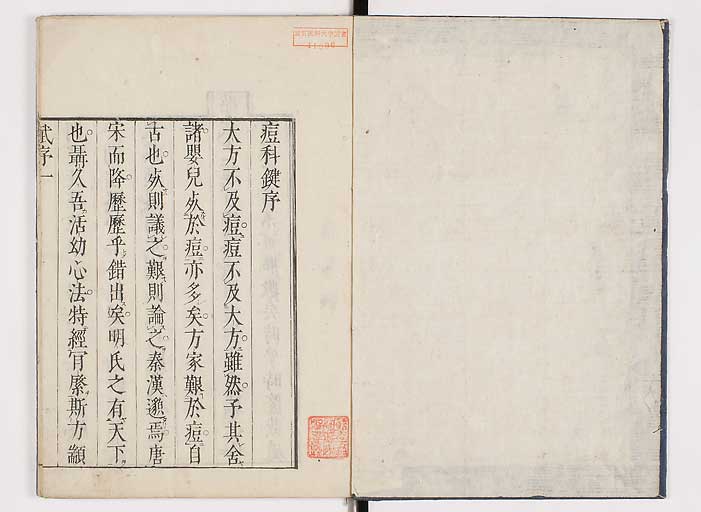 痘科鍵序
大方不及痘痘不及大方雖然予其舍
諸嬰兒夾於痘亦多矣方家艱於痘自
古也夾則議之艱則論之秦漢邈焉唐
宋而降歷歷乎錯出矣明氏之有天下
也聶久吾活幼心法特經肯綮斯方顓
序一